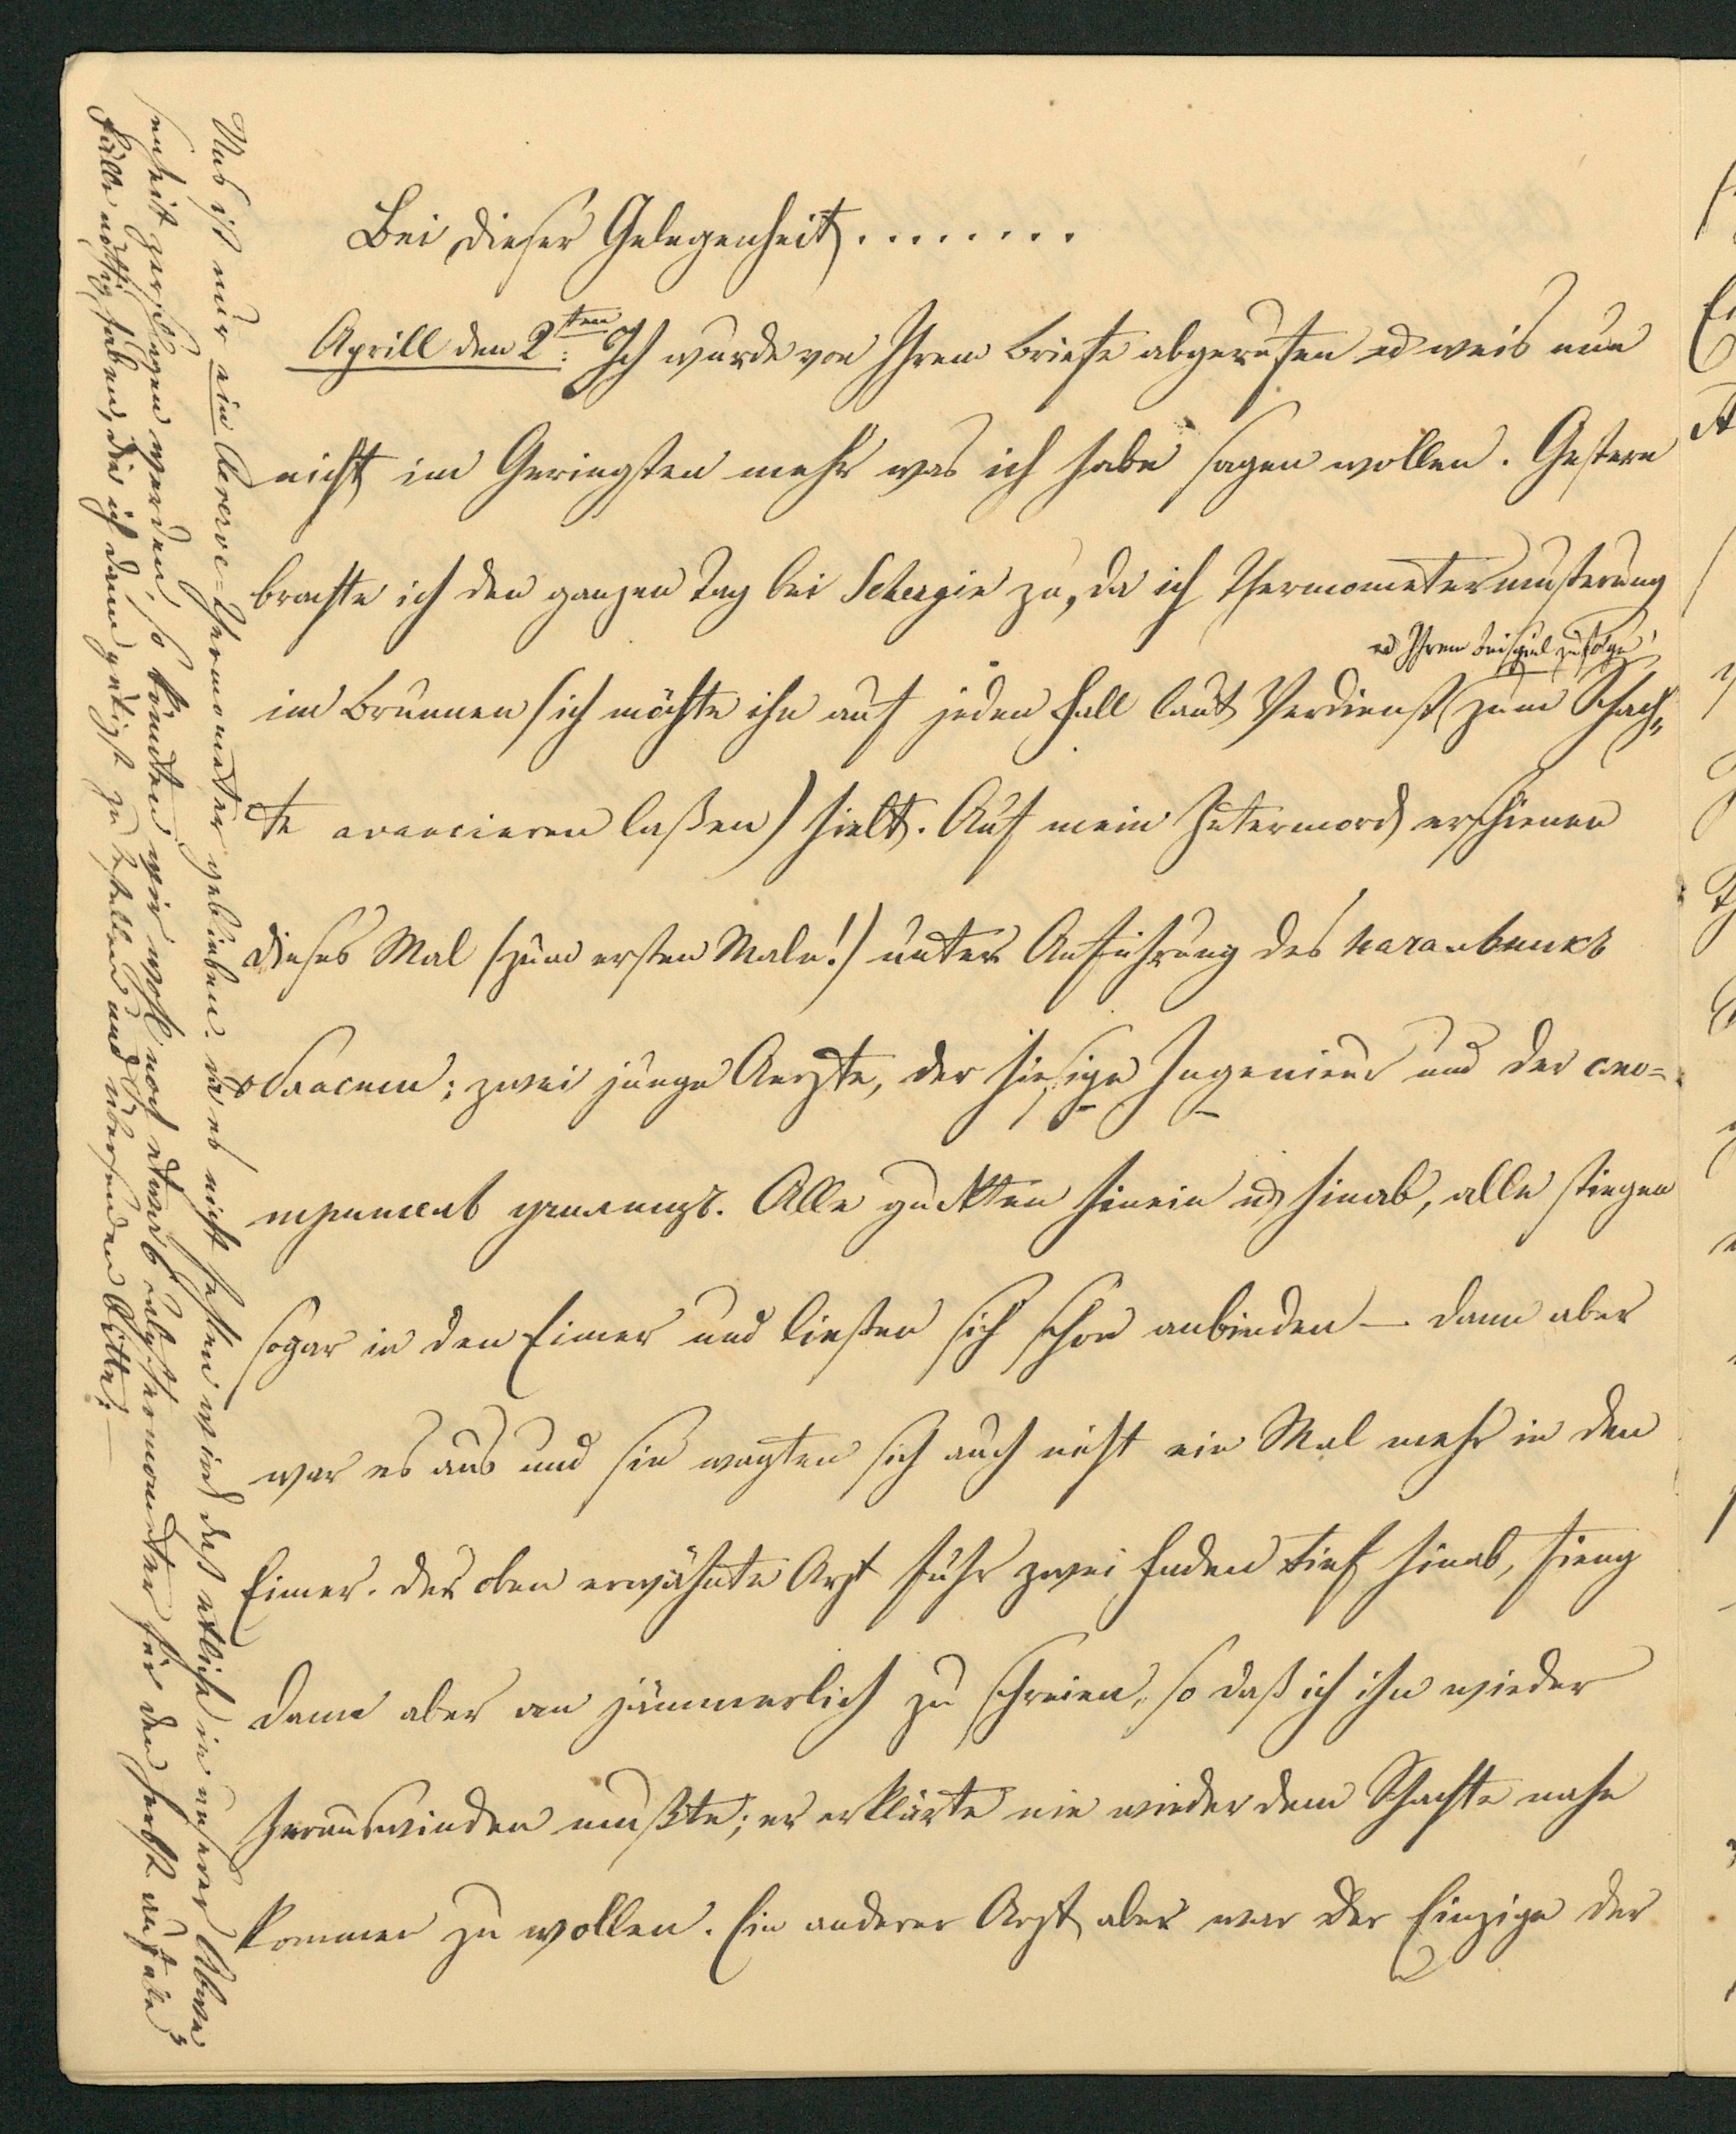 Bei dieser Gelegenheit ........
Aprill den 2ten: Ich wurde von Ihrem Briefe abgerufen ud weis nun
nicht im Geringsten mehr was ich habe sagen wollen. Gestern
brachte ich den ganzen Tag bei Schergin zu, da ich Thermometermusterung
ud Ihrem Beispiel zu Folge
im Brunnen (ich möchte ihn auf jeden Fall laut Verdienst zum Schach„
te avancieren laßen) hielt. Auf mein Zetermord erschienen
dieses Mal (zum ersten Male!) unter Anführung des Начальника
области; zwei junge Aerzte, der hiesige Ingenieur und der смо-
тритель училищъ. Alle guckten hinein ud hinab, alle stiegen
sogar in den Eimer und ließen sich schon anbinden — dann aber
war es aus und sie wagten sich auch nicht ein Mal mehr in den
Eimer. Der oben erwähnte Arzt fuhr zwei Faden tief hinab, fieng
dann aber an jämmerlich zu schreien, so daß ich ihn wieder
herauswinden mußte; er erklärte nie wieder dem Schachte nahe
kommen zu wollen. Ein anderer Arzt aber war der Einzige der
Uns ist nur ein Reserve-Thermometer geblieben. da es nicht fehlen wird daß etliche in unserer Abwe
senheit zerschlagen werden, so könnten wir wohl noch etwas Thermometer für den Herbst auf alle
Fälle nöthig haben, die ich dann gütigst zu bestellen und übersenden bitte. —